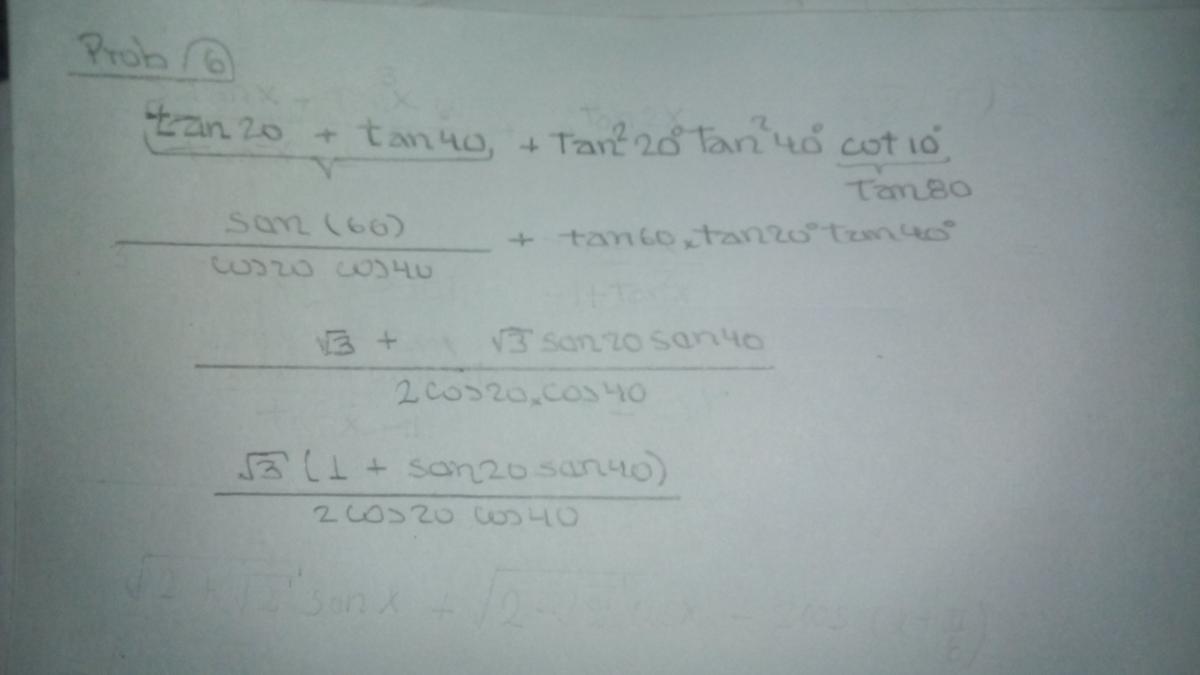 Prob 6
tan20 + tan40 + Tan²20° Tan²40° cot10°
Tan80
san(60) / cos20 cos40 + tan60 x tan20° tan40°
√3 + √3 san20 san40 / 2cos20 x cos40
√3 (1 + san20 san40) / 2cos20 cos40